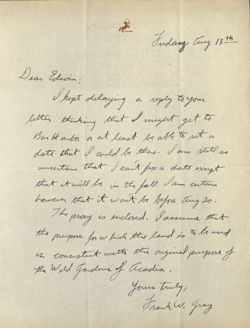 Friday Aug 13th
Dear Edwin:
I kept delaying a reply to your
letter thinking that I might get to
Bar Harbor or at least be able to set a
date that I could be there. I am still so
uncertain that I can't fix a date except
that it will be in the fall. I am certain
however that it won't be before Aug 20.
The proxy is enclosed. I assume that
the purpose for which this land is to be used
is consistent with the original purpose of
the Wild Gardens of Acadia.
Yours truly,
Frank W. Gray